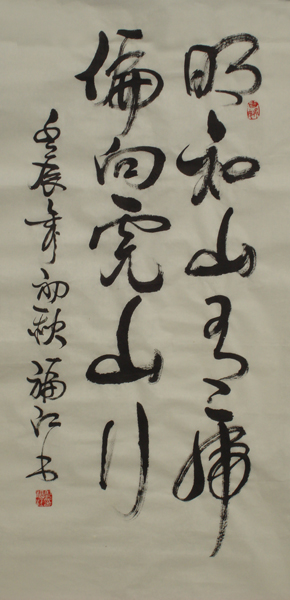 明知山有虎
偏向虎山行
壬辰年初秋福江书